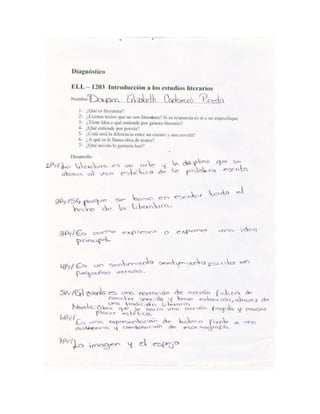 Diagnóstico
ELL – 1203 Introducción a los estudios literarios
Nombre: Dayana Elizabeth Cartagena Pineda
1- ¿Qué es literatura?
2- ¿Existen textos que no son literatura? Si su respuesta es sí o no especifique.
3- ¿Tiene idea o qué entiende por género literario?
4- ¿Qué entiende por poesía?
5- ¿Cuál será la diferencia entre un cuento y una novela?
6- ¿A qué se le llama obra de teatro?
7- ¿Qué novela le gustaría leer?
Desarrollo
1R// La literatura es un arte y la disciplina que se
aboca al uso estético de la palabra escrita
2R// Sí porque se basa en escribir todo el
hecho de la literatura.
3R// Es como expresar o exponer una idea
principal.
4R// Es un sentimiento escrito en
pequeños versos.
5R// El cuento: es una narración de acción ficticia de
caracter sencillo y breve extención, atraves de
una tradición literaria
Novela: Obra que se narra una acción fingida y causar
placer estético.
6R// Es una representación de historia frente a una
audiencia y combinación de escenografía.
7R// La imagen y el espejo